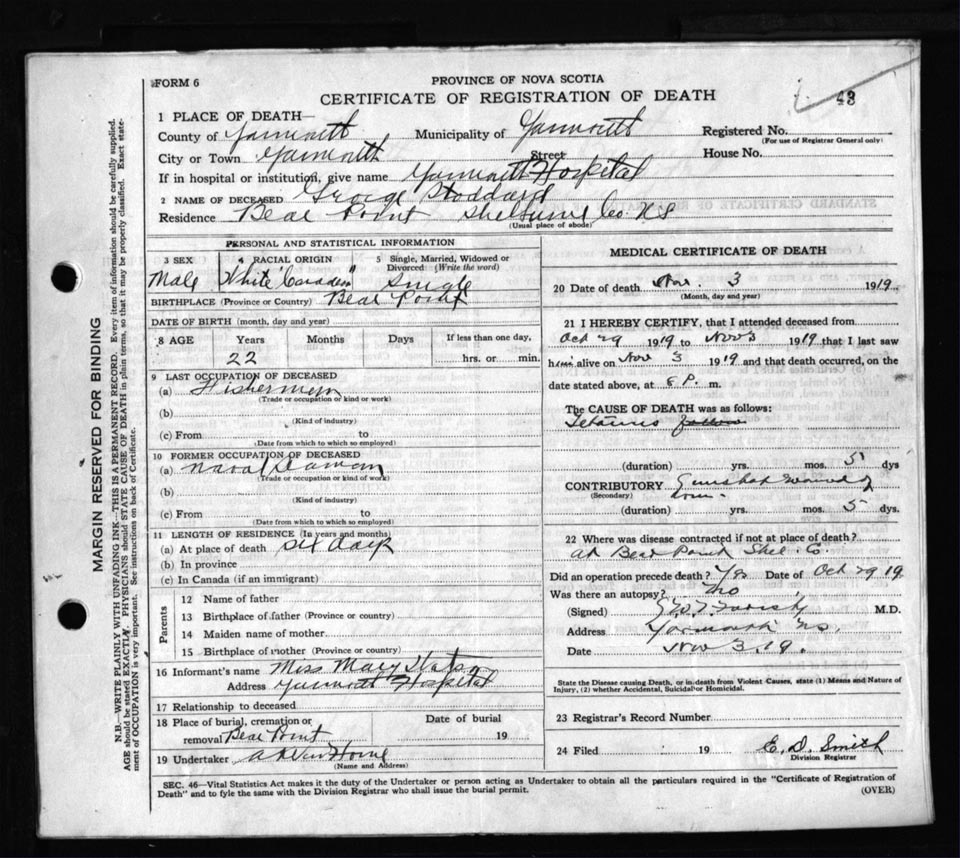 FORM 6
PROVINCE OF NOVA SCOTIA
43
CERTIFICATE OF REGISTRATION OF DEATH
1 PLACE OF DEATH—
County of Yarmouth Municipality of Yarmouth Registered No.
(For use of Registrar General only)
City or Town Yarmouth Street House No.
If in hospital or institution, give name Yarmouth Hospital
2 NAME OF DECEASED George Stoddard
Residence Bear Point Shelburne Co. N.S
(Usual place of abode)
PERSONAL AND STATISTICAL INFORMATION
3 SEX 4 RACIAL ORIGIN 5 Single, Married, Widowed or Divorced (Write the word)
Male White "Canadian" Single
BIRTHPLACE (Province or Country) Bear Point
DATE OF BIRTH (month, day and year)
8 AGE Years Months Days If less than one day,
22 hrs. or min.
9 LAST OCCUPATION OF DECEASED
(a) Fisherman
(Trade or occupation or kind or work)
(b)
(Kind of industry)
(c) From to
(Date from which to which so employed)
10 FORMER OCCUPATION OF DECEASED
(a) Naval Seaman
(Trade or occupation or kind of work)
(b)
(Kind of industry)
(c) From to
(Date from which to which so employed)
11 LENGTH OF RESIDENCE (In years and months)
(a) At place of death six days
(b) In province
(c) In Canada (if an immigrant)
Parents
12 Name of father
13 Birthplace of father (Province or country)
14 Maiden name of mother
15 Birthplace of mother (Province or country)
16 Informant's name Miss Mary
Address Yarmouth Hospital
17 Relationship to deceased
18 Place of burial, cremation or removal Bear Point Date of burial 19
19 Undertaker A Van Horne
(Name and Address)
MEDICAL CERTIFICATE OF DEATH
20 Date of death Nov. 3 1919
(Month, day and year)
21 I HEREBY CERTIFY, that I attended deceased from
Oct 29 1919 to Nov 3 1919 that I last saw
him alive on Nov 3 1919 and that death occurred, on
date stated above, at 8 P. m.
The CAUSE OF DEATH was as follows:
Tetanus
(duration) yrs. mos. 5 dys
CONTRIBUTORY Gunshot wound of
(Secondary) arm.
(duration) yrs. mos. 5 dys.
22 Where was disease contracted if not at place of death?
at Bear Point Shel. Co.
Did an operation precede death? Yes Date of Oct 29 19
Was there an autopsy? No
(Signed) M.D.
Address Yarmouth N.S.
Date Nov 3. 19.
State the Disease causing Death, or in death from Violent Causes, state (1) Means and Nature of
Injury, (2) whether Accidental, Suicidal or Homicidal.
23 Registrar's Record Number
24 Filed 19 E. D. Smith
Division Registrar
SEC. 46—Vital Statistics Act makes it the duty of the Undertaker or person acting as Undertaker to obtain all the particulars required in the "Certificate of Registration of
Death" and to fyle the same with the Division Registrar who shall issue the burial permit.
(OVER)
MARGIN RESERVED FOR BINDING
N.B.—WRITE PLAINLY WITH UNFADING INK—THIS IS A PERMANENT RECORD. Every item of information should be carefully supplied.
AGE should be stated EXACTLY. PHYSICIANS should STATE CAUSE OF DEATH in plain terms, so that it may be properly classified. Exact statement of OCCUPATION is very important. See instructions on back of Certificate.